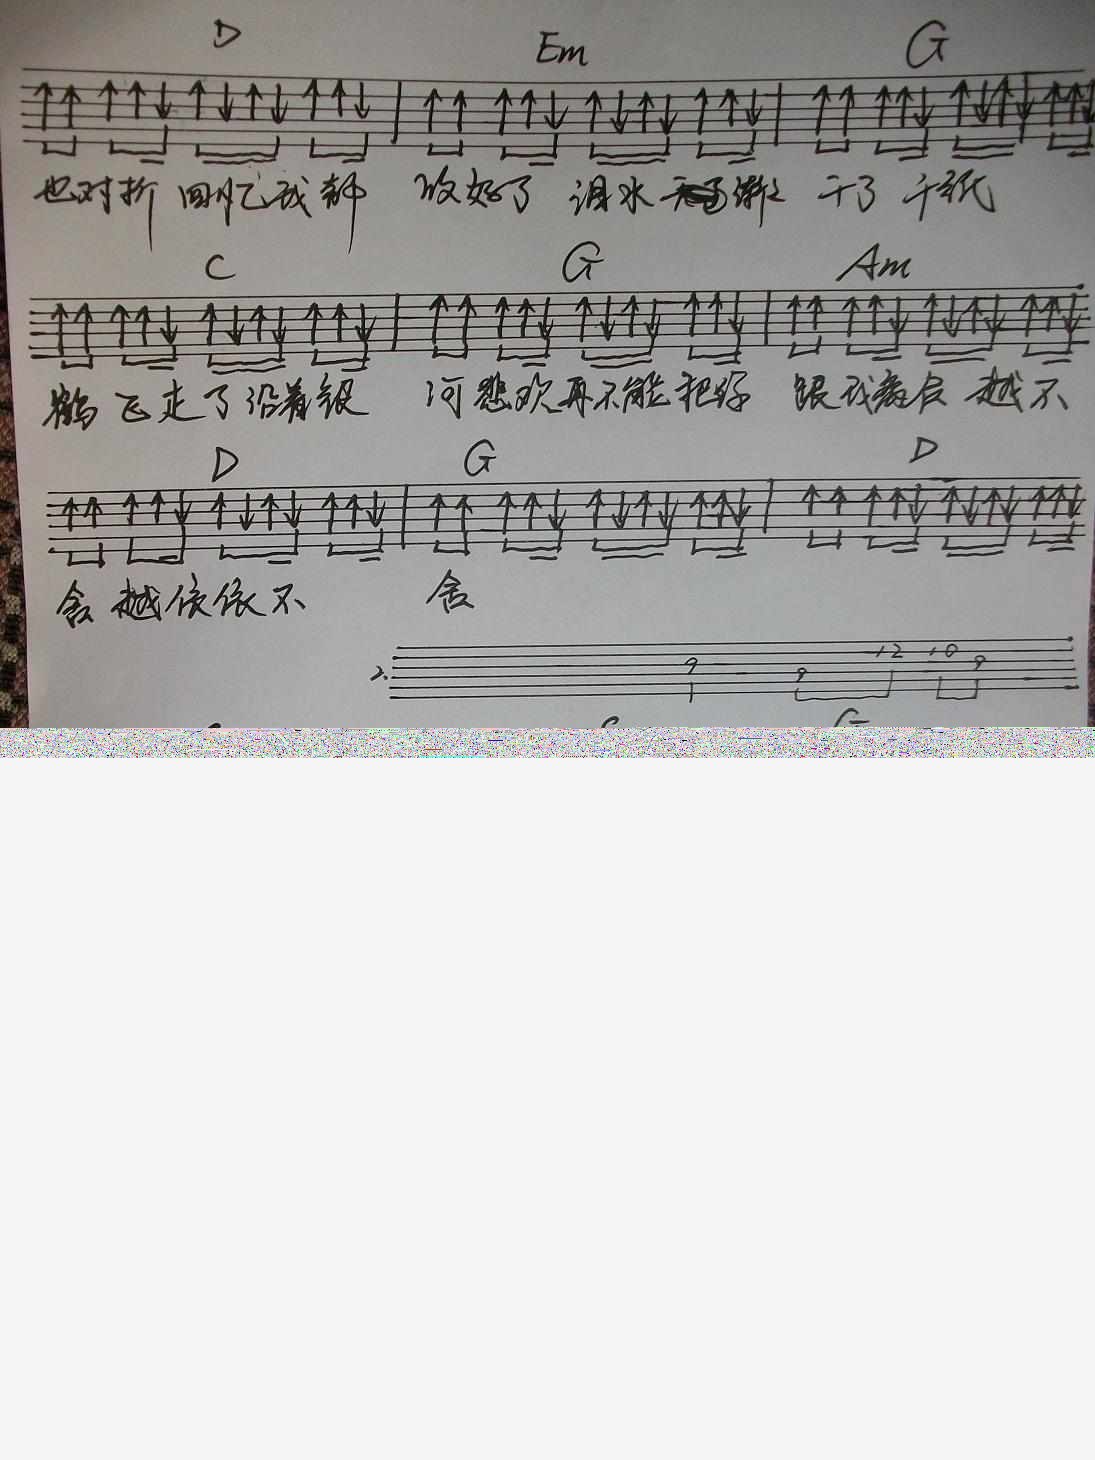 D Em G
也对折 回忆我都 放好了 泪水 渐々 干了 千纸
C G Am
鹤飞走了沿着银 河悲欢再不能把你 跟我离合 越不
D G D
舍 越依依不 舍
2. 9 9 12 10 9
G